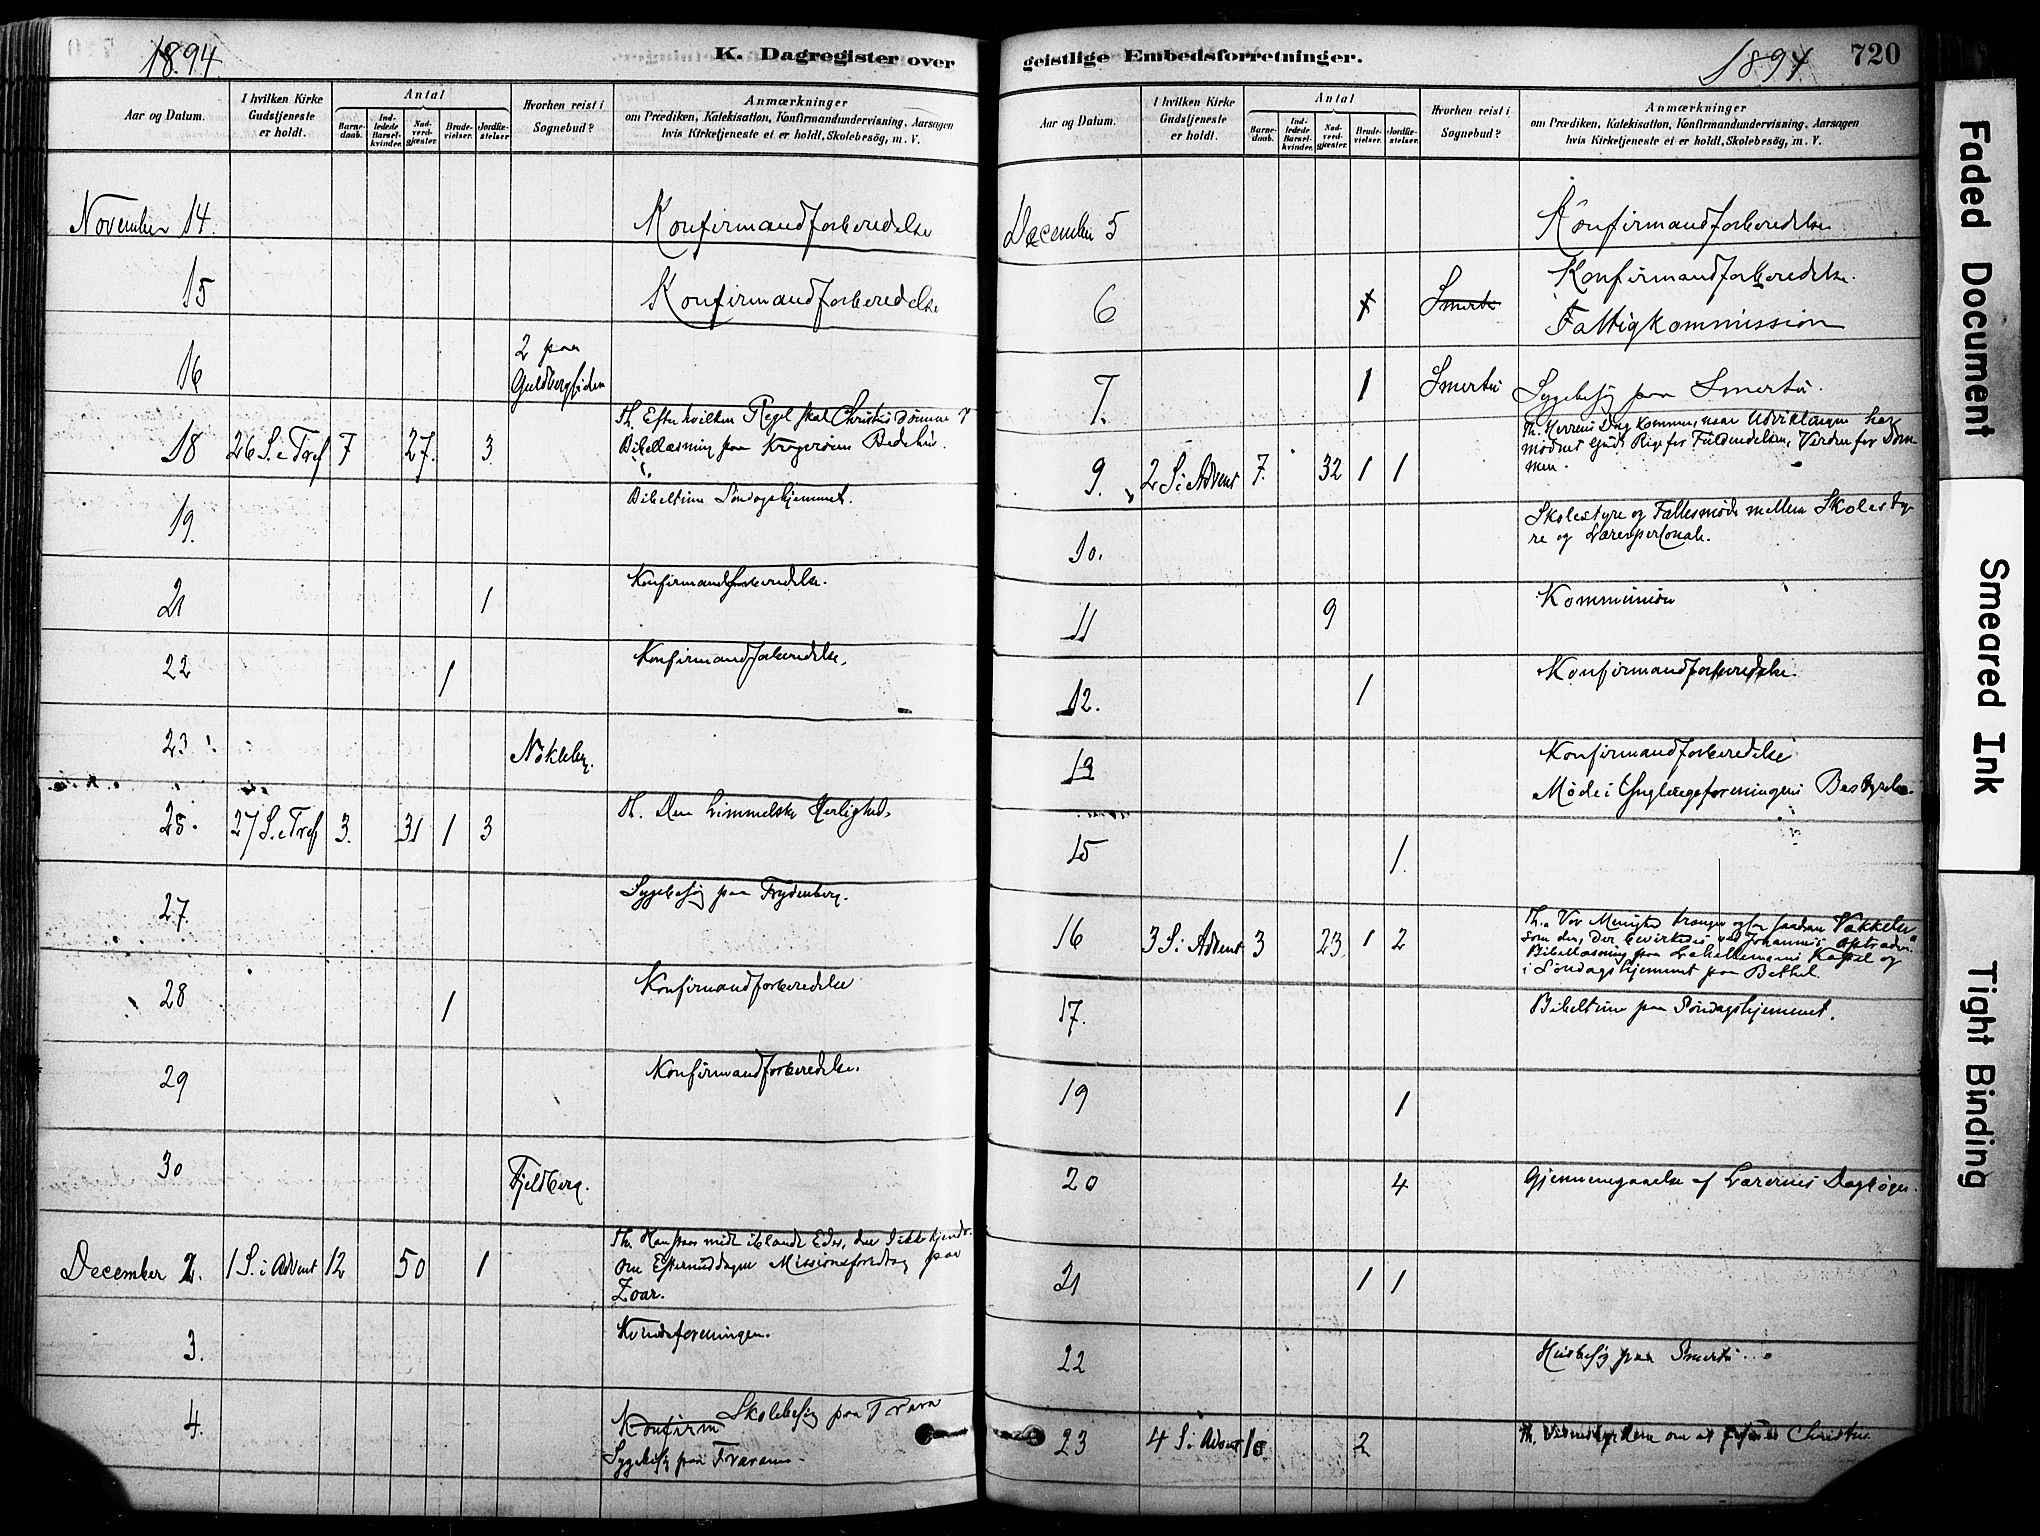 1894.
K. Dagregister over
Aar og Datum.
I hvilken Kirke Gudstjeneste er holdt.
Antal
Barne-daab.
Ind-ledede Barsel-kvinder.
Nad-verd-gjæster.
Brude-vielser.
Jordfæ-stelser.
Hvorhen reist i Sognebud?
Anmærkninger
om Prædiken, Katekisation, Konfirmandundervisning, Aarsagen
hvis Kirketjeneste ei er holdt, Skolebesög, m. V.
November 14. Konfirmandforberedelse
15 Konfirmandforberedelse
16 2 paa Guldbergsiden
18 26 S. e Tref 7 27. 3. Th. Efter hvilken Regel skal Christus dömme ?
Bibellæsning paa Kragerøens Bedehus.
19. Bibeltime Söndagshjemmet.
21 1 Konfirmandforberedelse.
22 1 Konfirmandforberedelse.
23 Nökleby.
25. 27 S. e Tref 3. 31 1 3 Th. Den himmelske Herlighed.
27. Sygebesög paa Frydenberg.
28 1 Konfirmandforberedelse
29 Konfirmandforberedelse.
30 Fjeldberg.
December 2. 1 S. i Advent 12 50 1 Th. Han staar midt iblandt Eder, den I ikke kjende.
Om Eftermiddagen Missionsforedrag paa
Zoar.
3. Kvindeforeningen.
4. Konfirm Skolebesög paa
Sygebesög paa
geistlige Embedsforretninger.
1894
720
Aar og Datum.
I hvilken Kirke Gudstjeneste er holdt.
Antal
Barne-daab.
Ind-ledede Barsel-kvinder.
Nad-verd-gjæster.
Brude-vielser.
Jordfæ-stelser.
Hvorhen reist i Sognebud?
Anmærkninger
om Prædiken, Katekisation, Konfirmandundervisning, Aarsagen
hvis Kirketjeneste ei er holdt, Skolebesög, m. V.
December 5 Konfirmandforberedelse
6 1 Smertu Konfirmandforberedelse.
Fattigkommission
7. 1 Smertu Sygebesög paa Smertu.
9. 2 S. i Advent 7. 32 1 1 Th. Herrens Dag kommer, naar Udviklingen har
modnet Guds Rige for Fuldendelsen, Verden for Dom-
men.
10. Skolestyre og Fællesmöde mellem Skolesty-
re og Lærerpersonale.
11 9 Kommunion
12. 1 Konfirmandforberedelse.
13 Konfirmandforberedelse
Möde i Ynglingeforeningens Bestyrelse.
15 1.
16 3 S. i Advent 3 23. 1 2 Th. Vor Menighed trænger ogsaa saadan Vækkelse
som den, der bevirkedes ved Johannes' Optræden.
Bibellæsning paa Kapel og
i Söndagshjemmet paa Bethel.
17. Bibeltime paa Söndagshjemmet.
19 1
20 4 Gjennemgaaelse af Lærernes Dagböger.
21 1 1
22 Husbesög paa Smertu.
23 4 S. i Advent 10. 2 Th. Vidnesbyrdene om Christus
Faded Document
Smeared Ink
Tight Binding